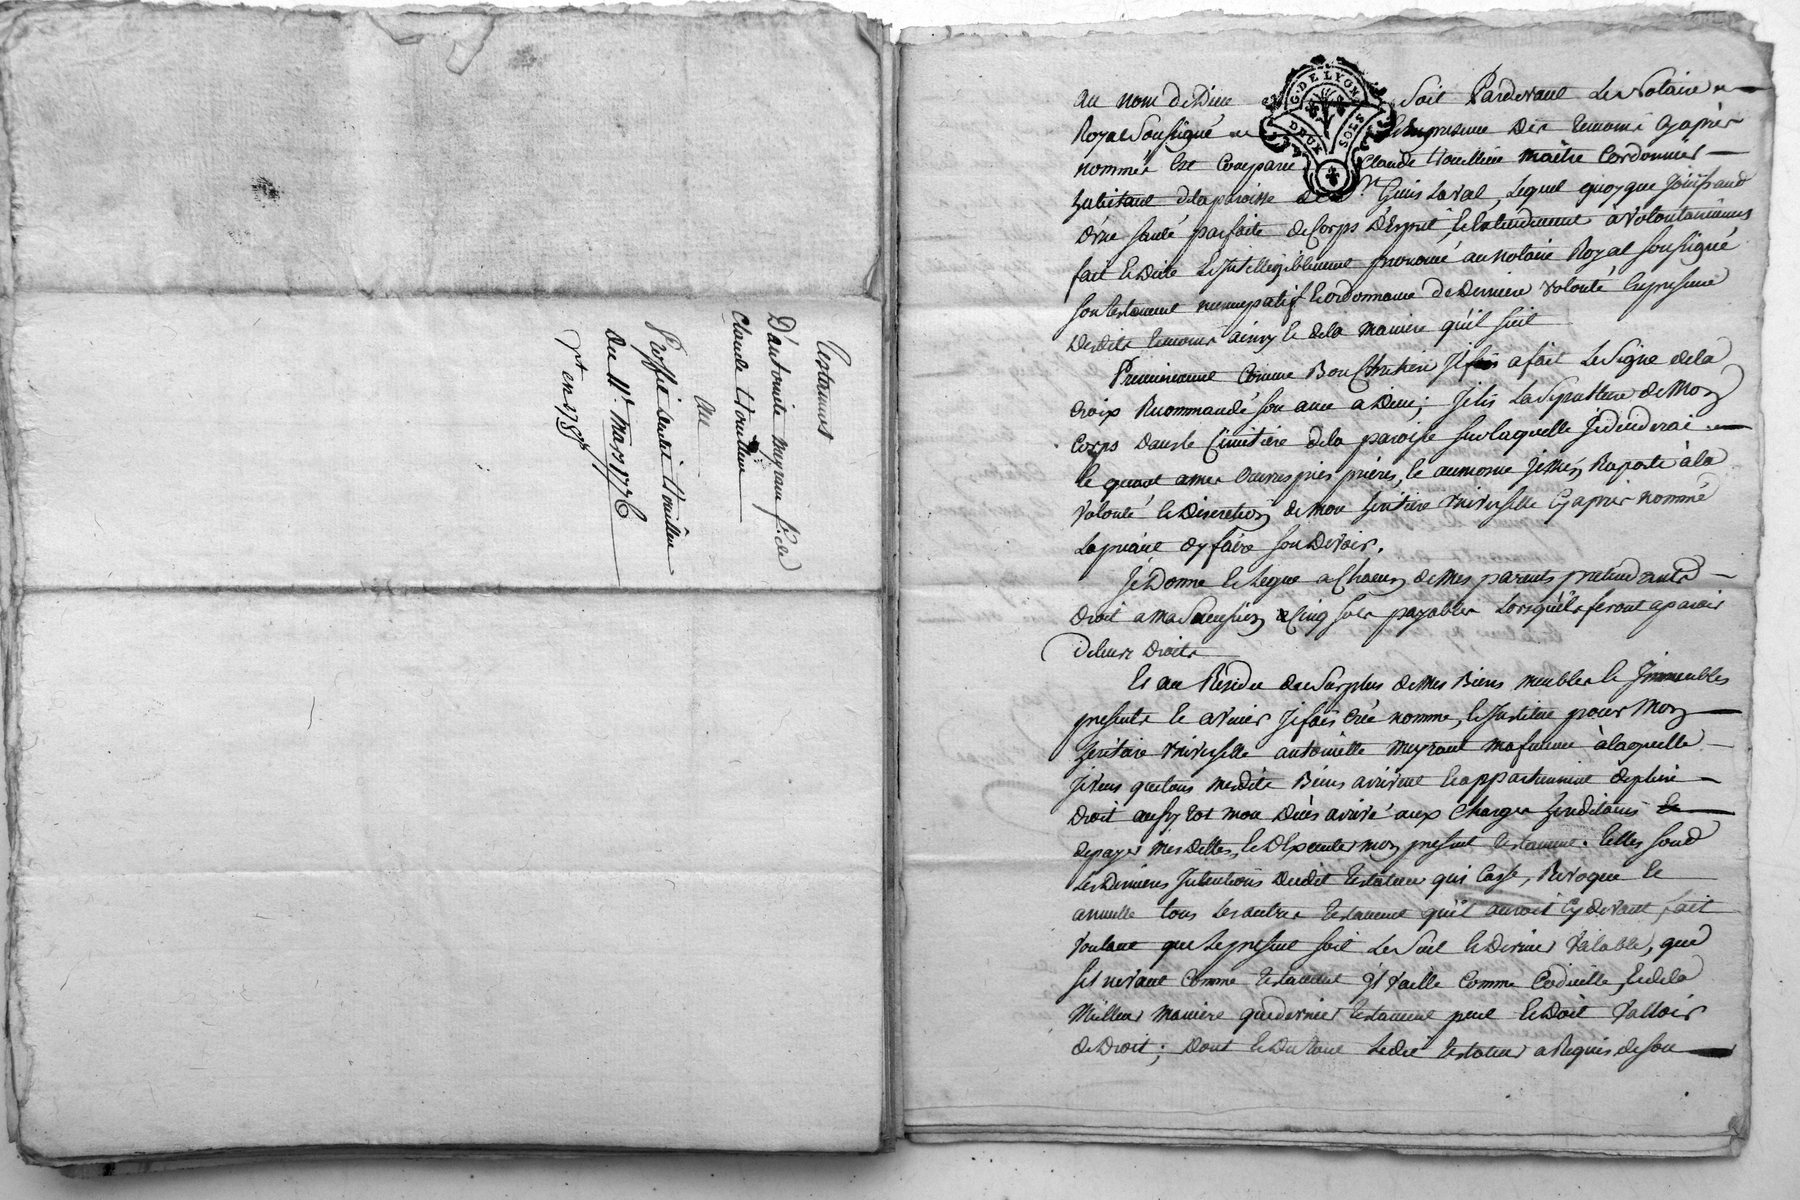 Testament
D'antoinete meyrant f.e de
Claude Houilleux
au
proffit dudit houilleux
du 11e mars 1776
G. DE LYON
DEUX SOLS
Au nom de Dieu soit Pardevant Le Notaire
Royal Soussigné en presence Des temoins Cyaprès
nommés Est Comparu Claude houilleux maître Cordonnier
habitant dela paroisse de St Genis Laval, Lequel quoyque Joüissant
D'une santé parfaite de Corps D'Esprit, & Entendement à volontairement
fait & Dicté & Intelligiblement prononcé au notaire Royal soussigné
son testament nuncupatif & ordonnance de Derniere volonté En presence
Desdits temoins ainsy & dela maniere qu'il suit
Premierement Comme Bon Chretien Jl a fait Le Signe dela
Croix Recommandé son ame a Dieu; J'élis La Sepulture de Mon
Corps Dans le Cimetiere dela paroisse sur laquelle Je decederai
& quant a mes Oeuvres pies prieres, & aumosne Je m'en Raporte à la
volonté & Discretion de mon heritiere universelle Cyaprès nommé
La priant d'y faire son Devoir.
Je Donne & Legue a Chacun de Mes parents pretendants
Droit a ma Sucession Cinq sols payables Lorsqu'ils feront aparoir
de leurs Droits
Et au Residu du Surplus de Mes Biens meubles & Jmmeubles
presents & avenir Je fais Crée nomme, & Institue pour Mon
heritiere universelle antoinette meyrant ma femme à laquelle
Je veux que tous mesdits Biens arrivent & appartiennent de plein
Droit aussytot mon Décès arrivé aux Charges hereditaires &
de payer mes dettes, & D'Executer mon present testament. telles sont
Les Dernieres Intentions Dudit testateur qui Casse, Revoque &
annulle tous Les autres testament qu'il auroit Cydevant fait
voulant que Le present soit Le Seul & Dernier valable, que
s'il ne vaut Comme testament Jl vaille Comme Codicille, & dela
Meilleur maniere que dernier testament peut & Doit valloir
de Droit; Dont & Du tout Ledit testateur a Requis de son